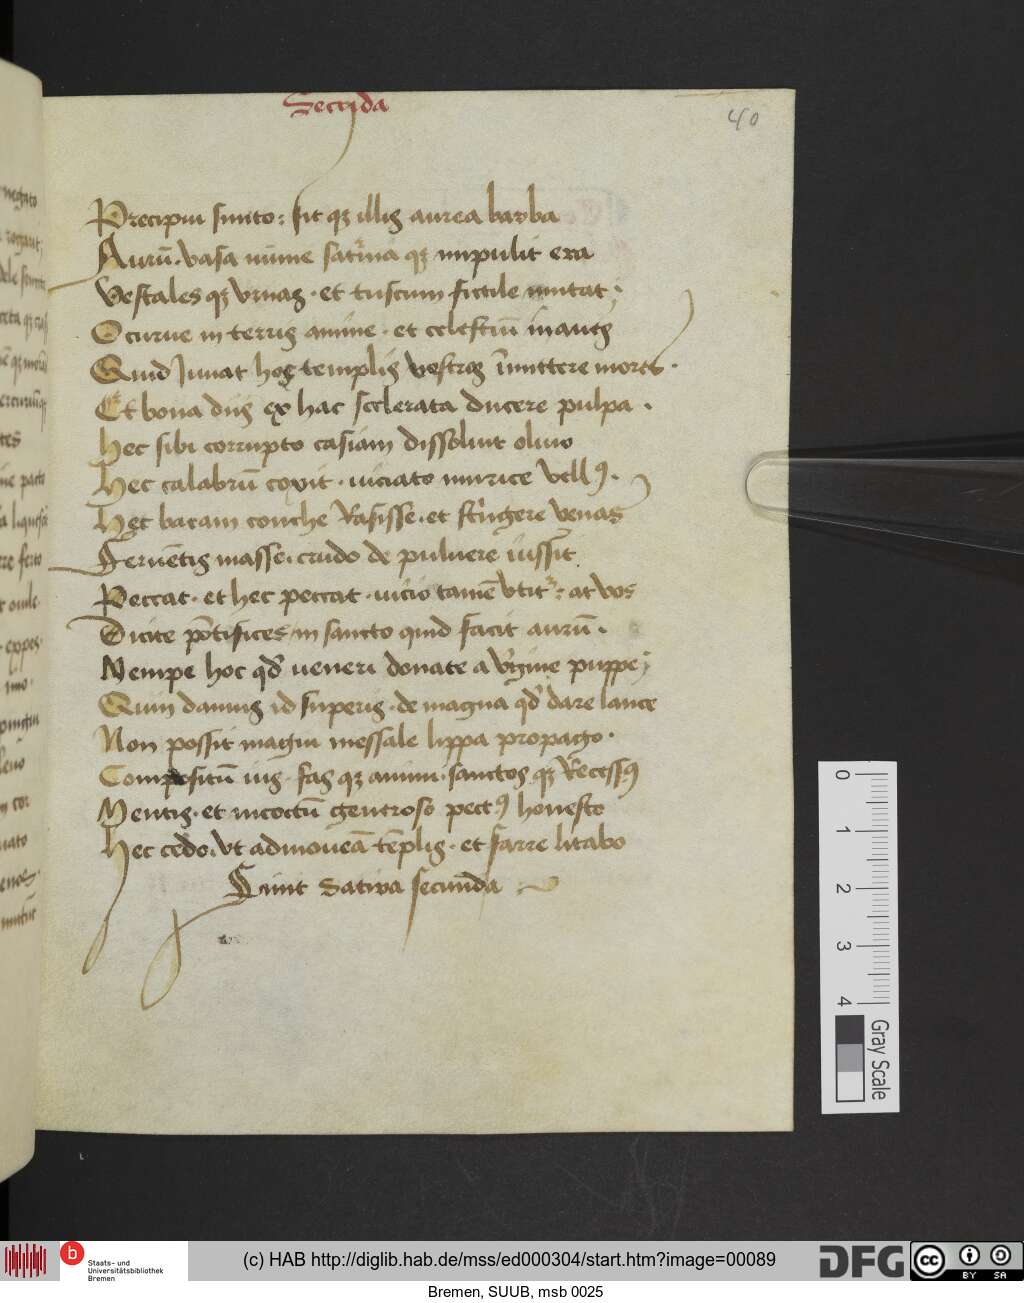 Secūda
40
Precipui sunto: sit qꝫ illis aurea barba
Aurū. vasa nume saturnia qꝫ impulit era
Vestales qꝫ vrnas. et tuscum fictile mutat;
O curue in terris anime. et celestiū inanes
Quid Juvat hos templis vestros īmittere mores.
Et bona diis ex hac scelerata ducere pulpa.
Hec sibi corrupto casiam dissoluit oliuo
Hec calabrū coxit. uiciato murice vellꝰ.
Hec bacam conche Rasisse. et stringere venas
Feruētis masse. crudo de puluere iussit.
Peccat. et hec peccat. uicio tamē vtitur: at vos
Dicite pōtifices in sancto quid facit aurū.
Nempe hoc qd' ueneri donate a virgine puppe;
Quin damus id superis. de magna qd' dare lance
Non possit magni messale lippa propago.
Compositū ius. fas qꝫ animi. sanctos qꝫ Recessꝰ
Mentis. et incoctū generoso pectꝰ honesto
Hec cedo. vt admoueā tēplis. et farre litabo
Finit Satira secunda
negato
rogaut;
pacto
ferto
ouile
0
1
2
3
4
Gray Scale
b Staats- und
Universitätsbibliothek
Bremen
(c) HAB http://diglib.hab.de/mss/ed000304/start.htm?image=00089
DFG
cc
BY SA
Bremen, SUUB, msb 0025